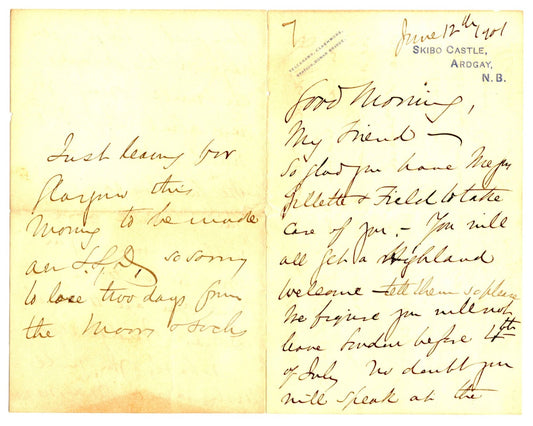 June 12th 1901
SKIBO CASTLE,
ARDGAY,
N.B.
Good Morning,
My Friend —
So glad you have Messrs
Gillette & Field to take
care of you. — You will
all get a Highland
welcome — tell them so please
We figure you will not
leave London before 4th
of July No doubt you
will speak at the
Just leaving for
Glasgow this
Morning to be made
an L.L.D, so sorry
to lose two days from
the Moors & Lochs